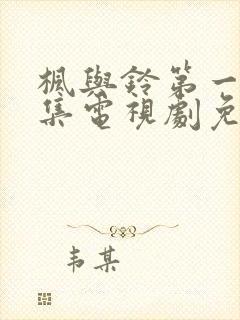 楓與鈴第一
集電視劇免
韦某